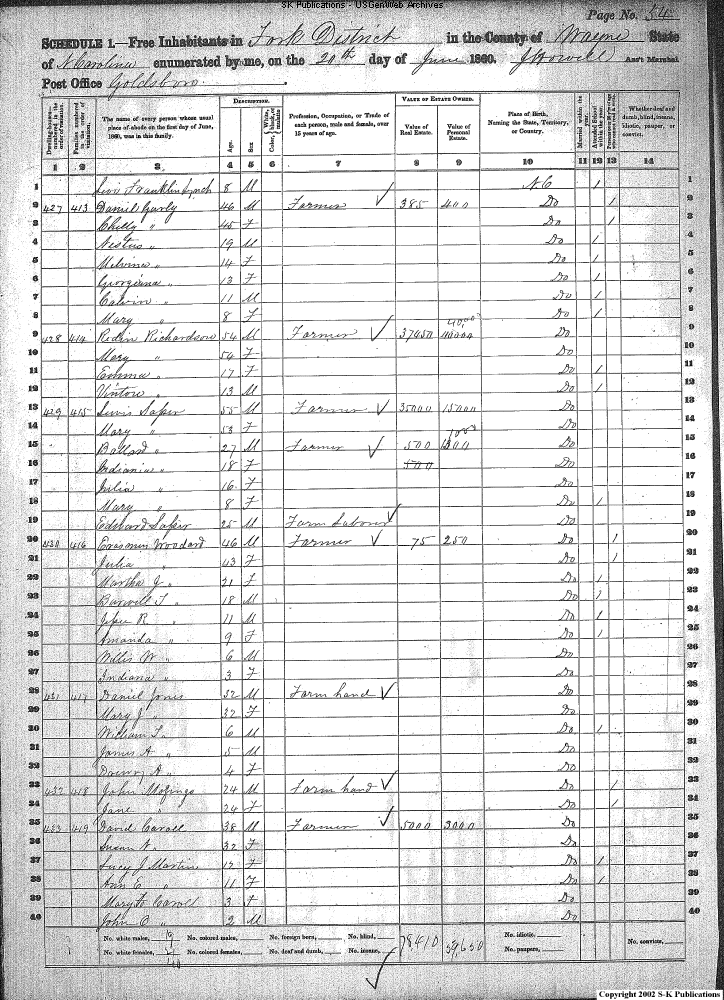 SK Publications - USGenWeb Archives
Page No. 54
SCHEDULE 1.—Free Inhabitants in Fork District in the County of Wayne State
of N. Carolina enumerated by me, on the 20th day of June 1860. J Howell Ass't Marshal
Post Office Goldsboro.
DESCRIPTION. VALUE OF ESTATE OWNED.
Dwelling-houses numbered in the order of visitation. Families numbered in the order of visitation. The name of every person whose usual place of abode on the first day of June, 1860, was in this family. Age. Sex. Color, White, black, or mulatto. Profession, Occupation, or Trade of each person, male and female, over 15 years of age. Value of Real Estate. Value of Personal Estate. Place of Birth, Naming the State, Territory, or Country. Married within the year. Attended School within the year. Whether deaf and dumb, blind, insane, idiotic, pauper, or convict.
1 2 3 4 5 6 7 8 9 10 11 12 13 14
1 Franklin Lynch 8 M N.C / 1
2 427 413 Daniel 46 M Farmer 385 400 Do / 2
3 " 45 F Do / 3
4 " 19 M Do / 4
5 Melvina " 14 F Do / 5
6 Georgiana " 13 F Do / 6
7 Calvin " 11 M Do / 7
8 Mary " 8 F Do / 8
9 428 414 Richardson 54 M Farmer 37450 40,000 Do 9
10 Mary " 54 F Do 10
11 Emma " 17 F Do / 11
12 " 13 M Do / 12
13 429 415 Lewis 55 M Farmer 35000 15000 Do 13
14 Mary " 53 F Do 14
15 Ballard " 27 M Farmer 500 1000 Do 15
16 Indiania " 18 F 500 Do 16
17 Julia " 16 F Do 17
18 Mary " 8 F Do / 18
19 Edward 25 M Farm Laborer Do 19
20 430 416 Erasmus Woodard 46 M Farmer 75 250 Do / 20
21 Julia " 43 F Do / 21
22 Martha J " 21 F Do / 22
23 18 M Do / 23
24 R " 11 M Do / 24
25 Amanda " 9 F Do / 25
26 Willis W " 6 M Do 26
27 Indiana " 3 F Do 27
28 431 417 Daniel Jones 32 M Farm hand Do 28
29 Mary J " 32 F Do 29
30 William " 6 M Do / 30
31 James A " 5 M Do 31
32 A " 4 F Do 32
33 432 418 John Mozingo 24 M Farm hand Do / 33
34 Jane " 24 F Do / 34
35 433 419 David Caroll 38 M Farmer 5000 3000 Do 35
36 Susan 32 F Do 36
37 Lucy J Martin 12 F Do / 37
38 Ann E " 11 F Do / 38
39 Mary Caroll 3 F Do 39
40 John C " 2 M Do 40
No. white males, 19 No. colored males, No. foreign born, No. blind, 78410 59,650 No. idiotic,
No. white females, 21 No. colored females, No. deaf and dumb, No. insane, No. paupers, No. convicts,
Copyright 2002 S-K Publications